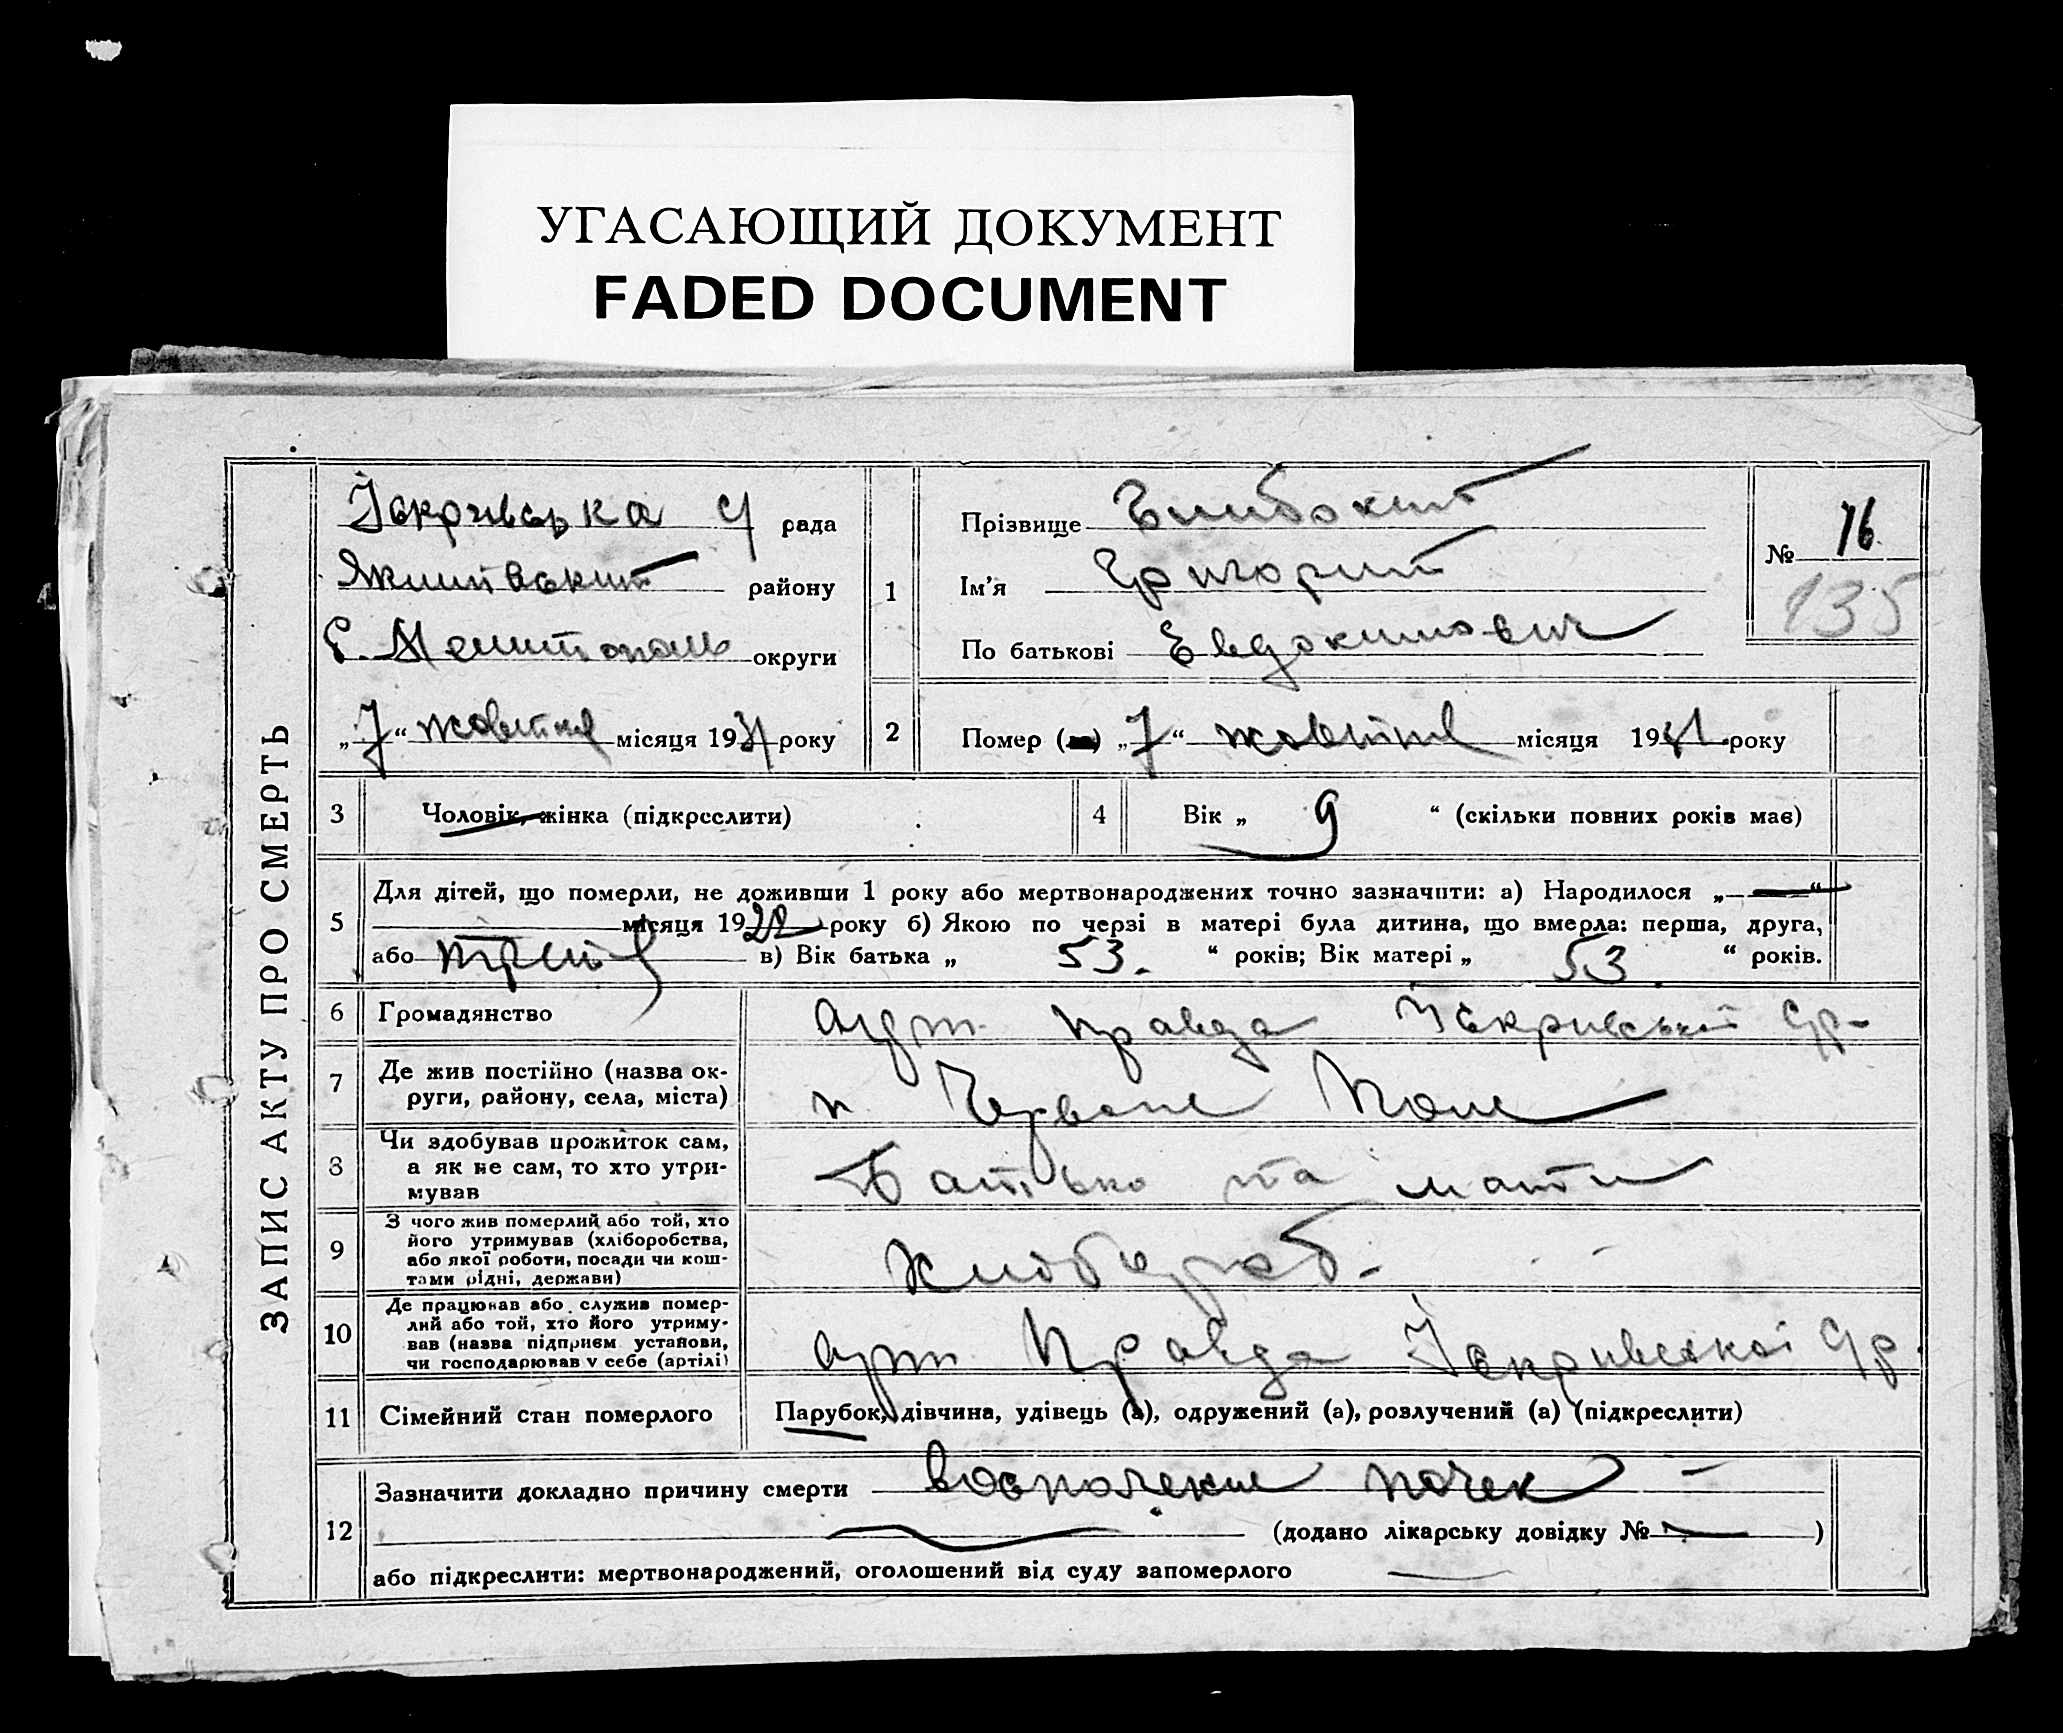 УГАСАЮЩИЙ ДОКУМЕНТ
FADED DOCUMENT
ЗАПИС АКТУ ПРО СМЕРТЬ
рада
району
округи
„7“ жовтня місяця 1931 року
1
Прізвище
Ім'я Григорий
По батькові Евдокимович
№ 76
135
2
Помер (ла) „7“ жовтня місяця 1931 року
3
Чоловік, жінка (підкреслити)
4
Вік „ 9 “ (скільки повних років має)
5
Для дітей, що померли, не доживши 1 року або мертвонароджених точно зазначити: а) Народилося „—“
місяця 1922 року б) Якою по черзі в матері була дитина, що вмерла: перша, друга,
або в) Вік батька „ 53. “ років; Вік матері „ 53 “ років.
6
Громадянство
арт. Правда Іскрівської с/р-
7
Де жив постійно (назва ок-
руги, району, села, міста)
п. Червоне Поле
8
Чи здобував прожиток сам,
а як не сам, то хто утри-
мував
Батько та мати
9
З чого жив померлий або той, хто
його утримував (хліборобства,
або якої роботи, посади чи кош-
тами рідні, держави)
хлібороб.-
10
Де працював або служив помер-
лий або той, хто його утриму-
вав (назва підприєм установи,
чи господарював у себе (артілі)
арт Правда Іскрівської с/р.
11
Сімейний стан померлого
Парубок, дівчина, удівець (а), одружений (а), розлучений (а) (підкреслити)
12
Зазначити докладно причину смерти восполение почек –
(додано лікарську довідку № — )
або підкреслити: мертвонароджений, оголошений від суду запомерлого